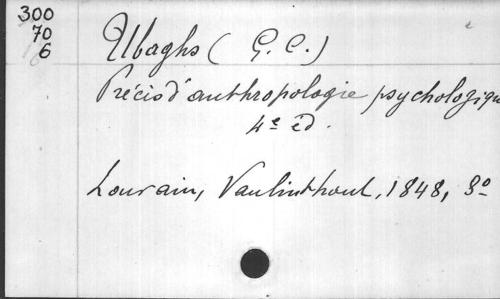 300
70
6
Ubaghs ( G. C. )
Précis d'anthropologie psychologique
4e éd.
Louvain, Vanlinthout, 1848, 8o